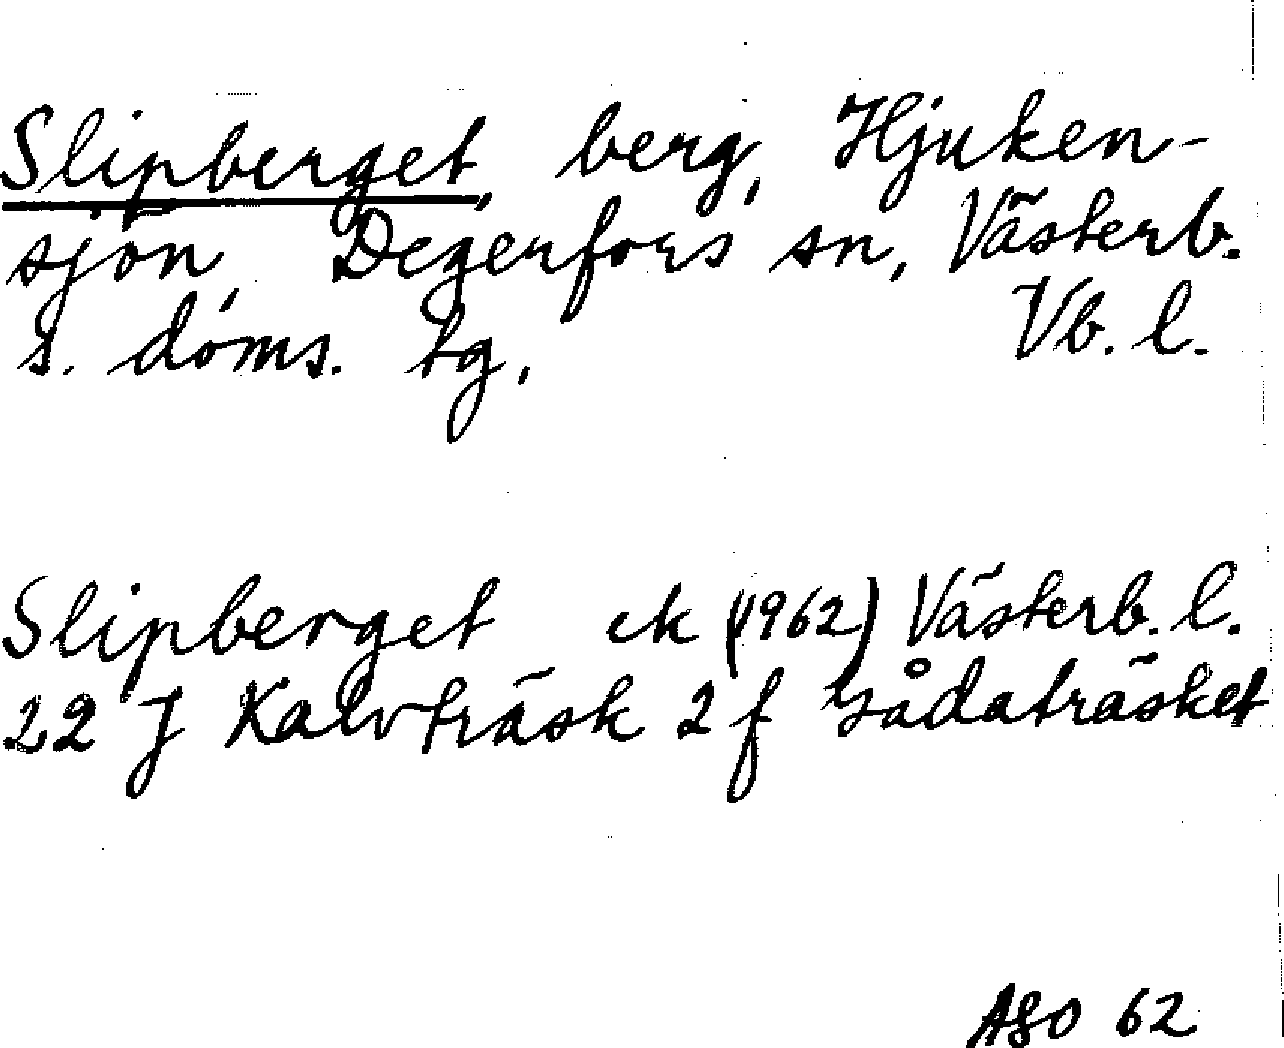 Slipberget, berg, Hjuken-
sjön, Degerfors sn, Västerb.
s. doms. tg. Vb. l.
Slipberget ek (1962) Västerb. l.
22 J Kalvträsk 2 f Sådaträsket
ASO 62